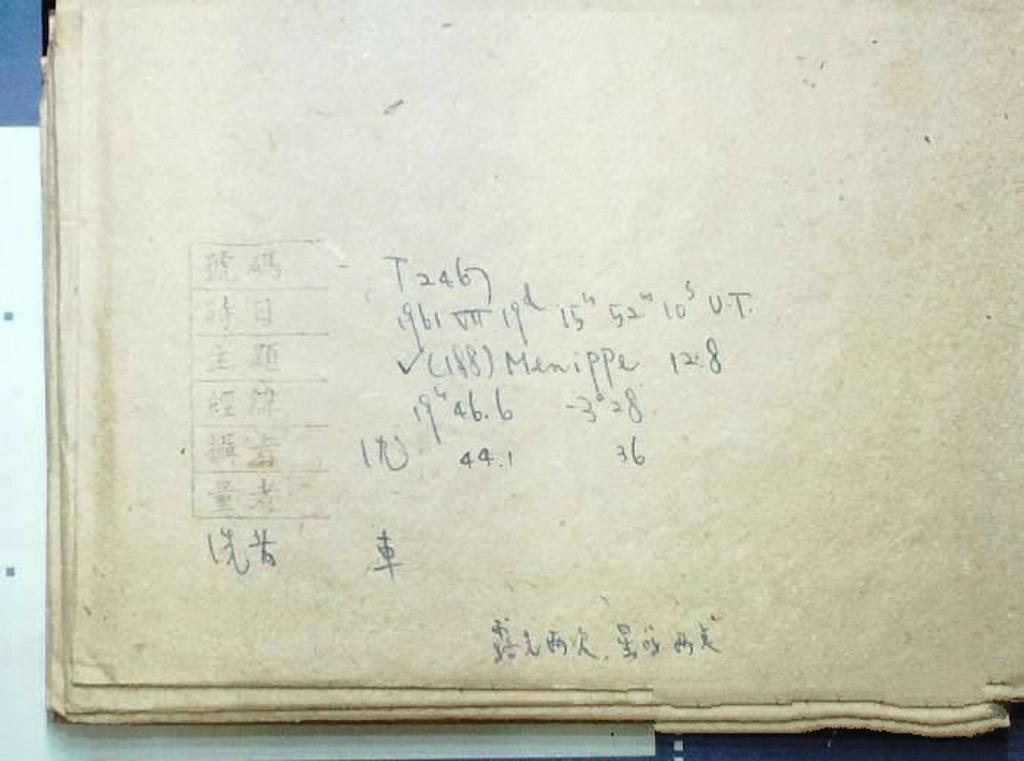 號碼 T2467
時日 1961 VII 19d 15h 52m 10s U.T.
主題 ✓(188) Menippe 12.8
經緯 19h 46.6 -3°28
攝者 44.1 36
量者
洗者 車
露光兩次，星成兩点